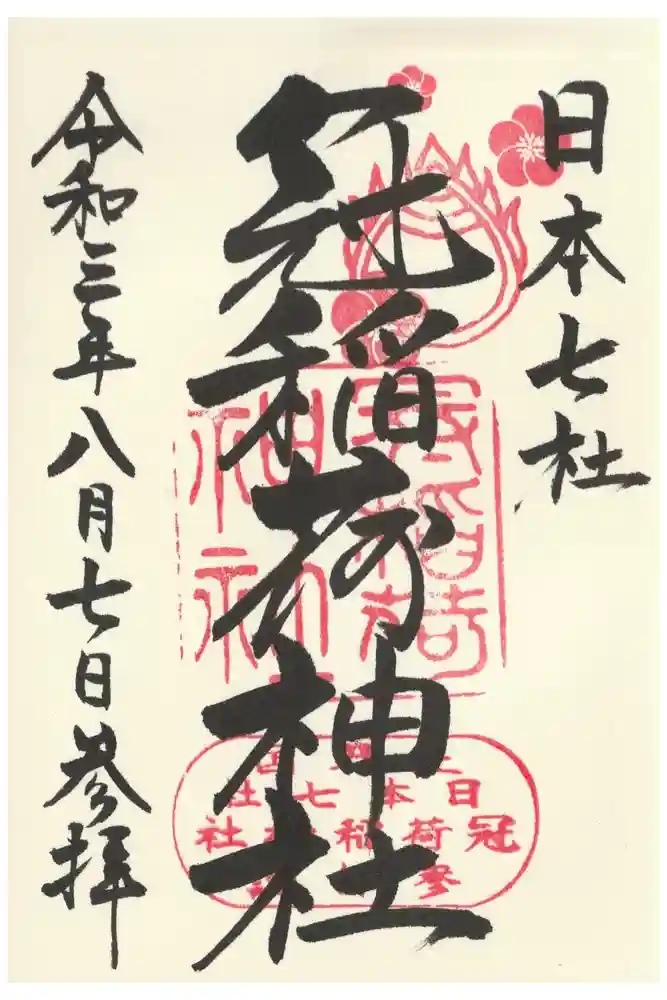 日本七社
冠稲荷神社
令和三年八月七日参拝
日本七社
冠稲荷神社